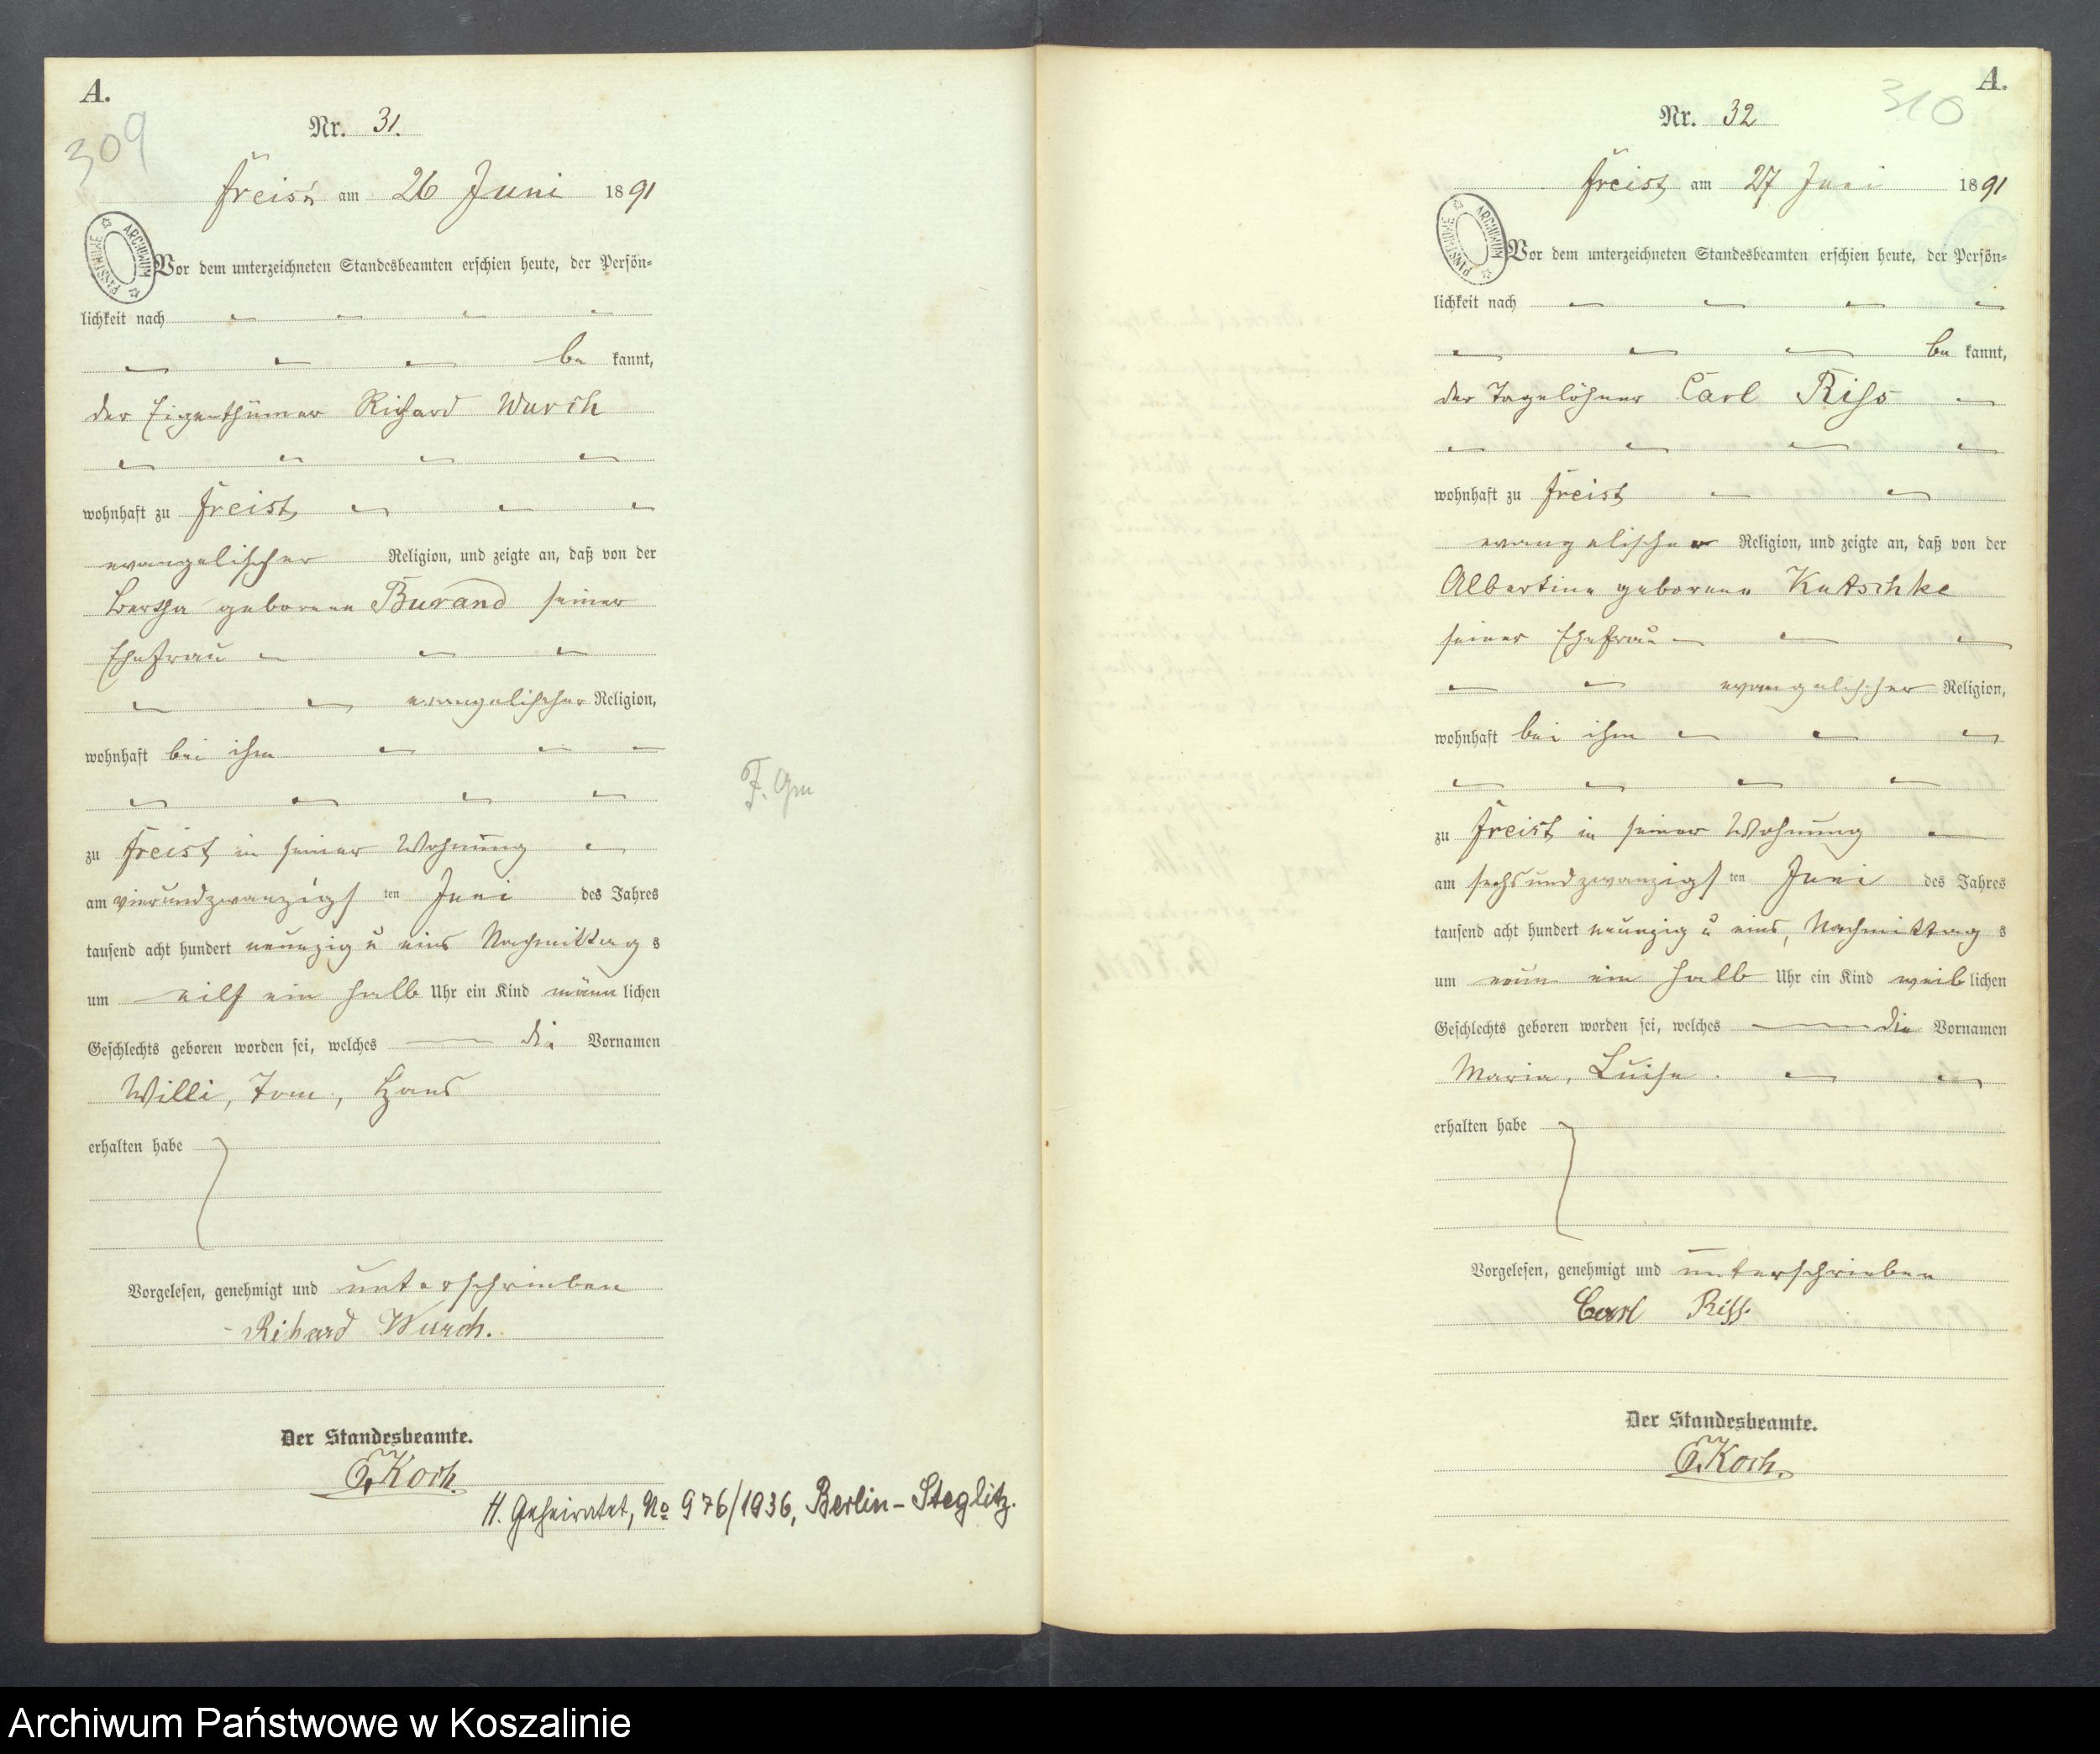 A.
309
Nr. 31.
Freist am 26 Juni 1891
ARCHIWUM PAŃSTWOWE
Vor dem unterzeichneten Standesbeamten erschien heute, der Persön-
lichkeit nach
be kannt,
der Eigenthümer Richard Wursch
wohnhaft zu Freist
evangelischer Religion, und zeigte an, daß von der
Bertha geborene Burand seiner
Ehefrau
evangelischer Religion,
wohnhaft bei ihm
zu Freist in seiner Wohnung
am vierundzwanzigsten Juni des Jahres
tausend acht hundert neunzig u eins Nachmittags
um eilf ein halb Uhr ein Kind männlichen
Geschlechts geboren worden sei, welches die Vornamen
Willi, Tom, Hans
erhalten habe
Vorgelesen, genehmigt und unterschrieben
Rihard Wursch.
Der Standesbeamte.
Koch.
H. Geheiratet, No 976/1936, Berlin-Steglitz.
F. Gm
A.
310
Nr. 32
Freist am 27 Juni 1891
ARCHIWUM PAŃSTWOWE
Vor dem unterzeichneten Standesbeamten erschien heute, der Persön-
lichkeit nach
be kannt,
der Tagelöhner Carl Riss
wohnhaft zu Freist
evangelischer Religion, und zeigte an, daß von der
Albertine geborene Katschke
seiner Ehefrau
evangelischer Religion,
wohnhaft bei ihm
zu Freist in seiner Wohnung
am sechsundzwanzigsten Juni des Jahres
tausend acht hundert neunzig u eins, Nachmittags
um neun ein halb Uhr ein Kind weiblichen
Geschlechts geboren worden sei, welches die Vornamen
Maria, Luise.
erhalten habe
Vorgelesen, genehmigt und unterschrieben
Carl Riss.
Der Standesbeamte.
Koch.
Archiwum Państwowe w Koszalinie